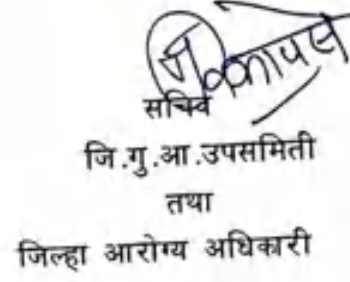 सचिव
जि.गु.आ.उपसमिती
तथा
जिल्हा आरोग्य अधिकारी